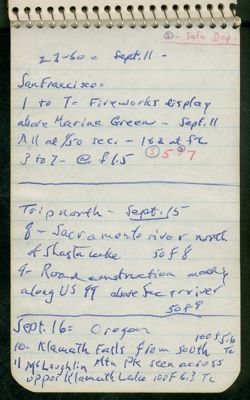 S- Safe Dep.
27-60 - Sept. 11 -
San Francisco:
1 to 7- Fireworks display
above Marine Green - Sept. 11
All at 1/50 sec. - 1&2 at f2
3 to 7- @ f 1.5 S 5 7
Trip north - Sept. 15
8- Sacramento river north
of Shasta Lake 50 f 8
9- Road construction
along US 99 above Sac river
50 f 9
Sept. 16= Oregon
10- Klamath Falls from South 100 f 5.6 Tc
11 McLoughlin Mtn Pk seen across
upper Klamath Lake 100 f 6.3 Tc